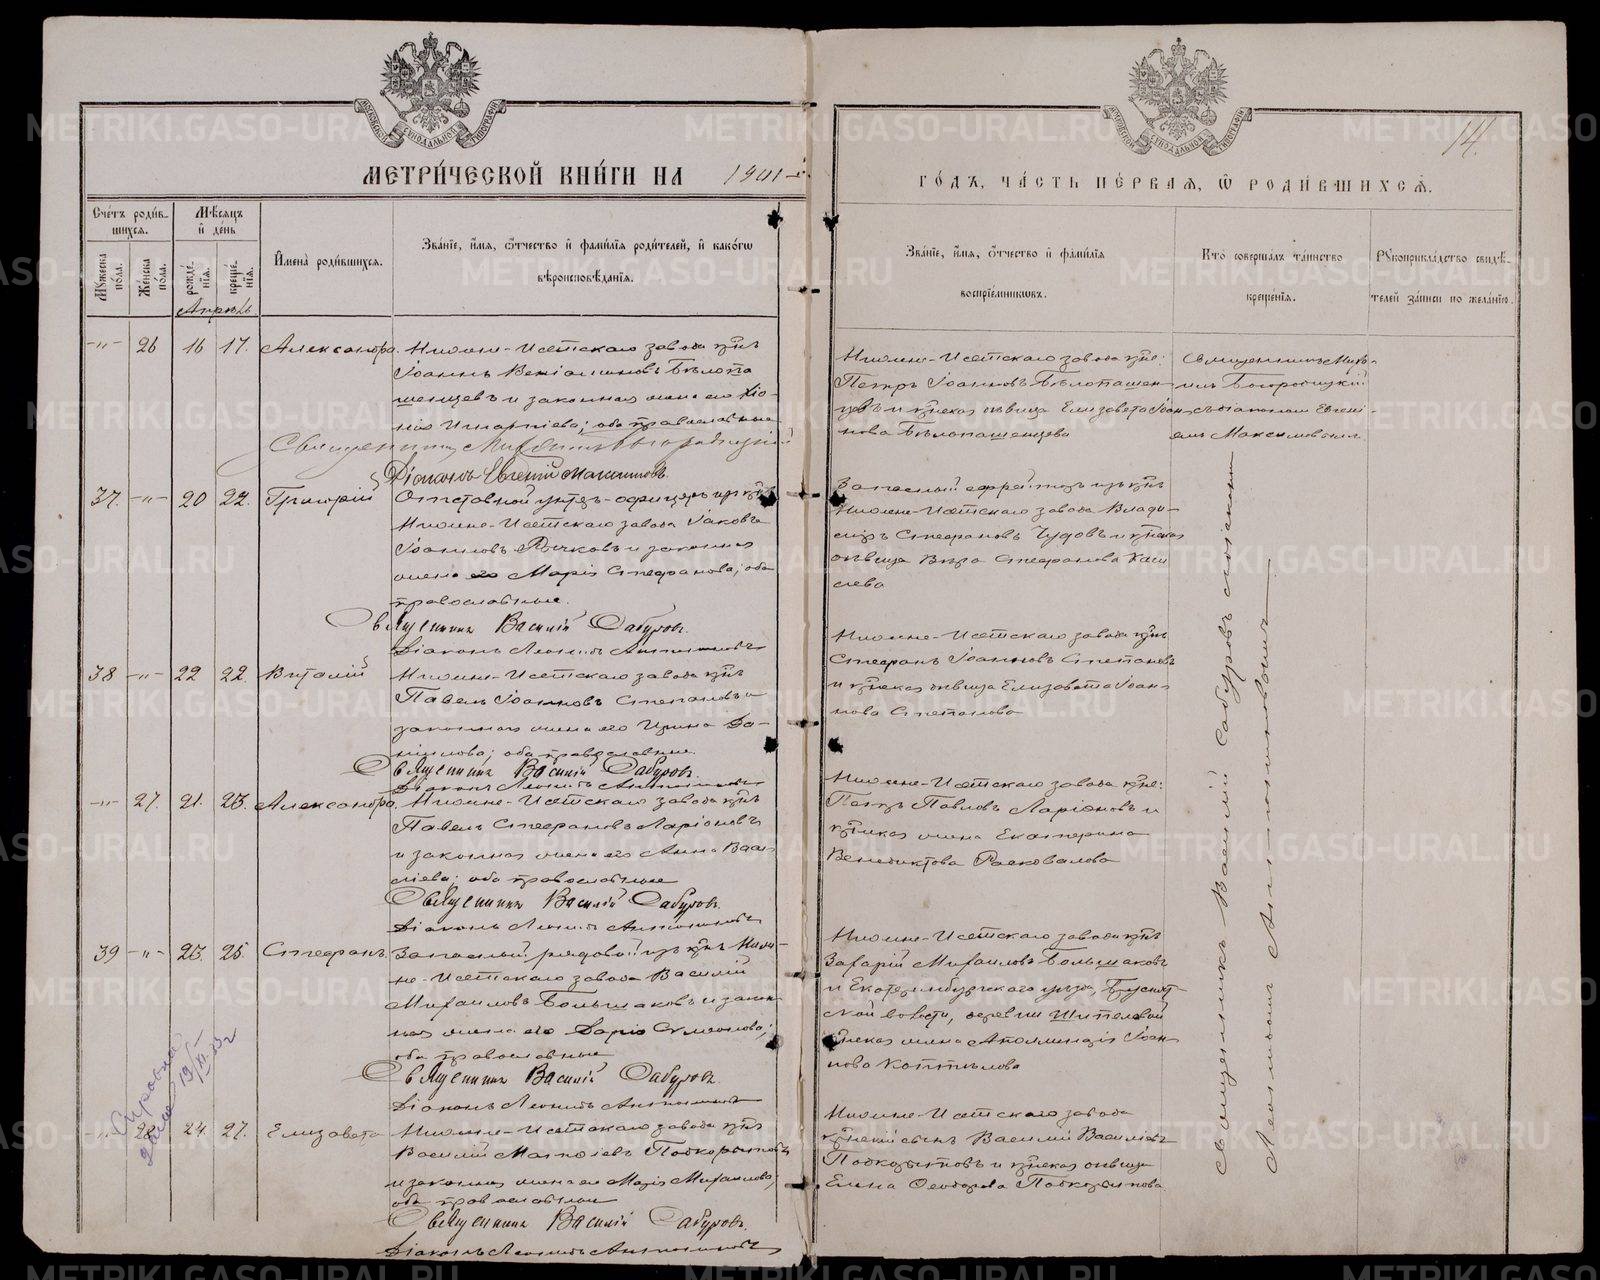 МЕТРИ́ЧЕСКОЙ КНИ́ГИ НА 1901-й
ГО́ДЪ, ЧА́СТЬ ПЕ́РВАЯ, Ѡ РОДИ́ВШИХСЯ.
14.
МОСКОВСКОЙ СѴНОДАЛЬНОЙ ТИПОГРАФІИ
МОСКОВСКОЙ СѴНОДАЛЬНОЙ ТИПОГРАФІИ
Сче́тъ роди́вшихся.
Мꙋ́жеска по́ла.
Же́нска по́ла.
Мѣ́сяцъ и҆ де́нь
рожде́нїя.
креще́нїя.
И҆мена̀ роди́вшихся.
Зва́нїе, и҆́мя, ѻ҆́тчество и҆ фами́лїя роди́телей, и҆ како́гѡ
вѣроисповѣ́данїя.
Зва́нїе, и҆́мя, ѻ҆́тчество и҆ фами́лїя
воспрїе́мникѡвъ.
Кто̀ соверша́лъ та́инство
креще́нїя.
Рꙋкоприкла́дство свидѣ́-
телей за́писи по жела́нїю.
Апрѣль
-"- 26 16 17. Александра.
Нижне-Исетскаго завода крнъ
Іоаннъ Веніаминовъ Бѣлопа
шенцевъ и законная жена его
Игнатіева; оба православные
Священникъ Михаилъ Богородицкій
Діаконъ Евгеній Максимовъ.
Нижне-Исетскаго завода крне:
Петръ Іоанновъ Бѣлопашен-
цевъ и крнская дѣвица Елизавета Іоан-
нова Бѣлопашенцева
Священникъ Миха-
илъ Богородицкій
съ діакономъ Евгені-
емъ Максимовымъ.
37. -"- 20 22. Григорій
Отставной унтер-офицеръ из крнъ
Нижне-Исетскаго завода Іаковъ
Іоанновъ и законная
жена его Марія Стефанова; оба
православные.
Священникъ Василій Сабуровъ.
Діаконъ Леонидъ
Запасный ефрейторъ изъ крнъ
Нижне-Исетскаго завода Влади-
миръ Стефановъ Чудовъ и крнская
дѣвица Вѣра Стефанова
38 -"- 22 22. Виталій
Нижне-Исетскаго завода крнъ
Павелъ Іоанновъ Степановъ и
законная жена его Ирина Да-
ніилова; оба православные.
Священникъ Василій Сабуровъ.
Діаконъ Леонидъ
Нижне-Исетскаго завода крнъ
Стефанъ Іоанновъ Степановъ
и крнская дѣвица Елизавета Іоан-
нова Степанова
-"- 27. 21. 23. Александра.
Нижне-Исетскаго завода крнъ
Павелъ Стефановъ Ларіоновъ
и законная жена его Анна Васи-
ліева; оба православные
Священникъ Василій Сабуровъ.
Діаконъ Леонидъ
Нижне-Исетскаго завода крне:
Петръ Павловъ Ларіоновъ и
крнская жена Екатерина
Венедиктова Расковалова
39 -"- 23. 25. Стефанъ.
Запасный рядовой изъ крнъ Ниж-
не-Исетскаго завода Василій
Михаиловъ Большаковъ и закон-
ная жена его Дарія Симеонова;
оба православные
Священникъ Василій Сабуровъ.
Діаконъ Леонидъ
Нижне-Исетскаго завода крнъ
Захарій Михаиловъ Большаковъ
и Екатеринбургскаго уѣзда,
волости, деревни Шипеловой
крнская жена Аполлинарія Іоан-
нова Коптѣлова
-"- 28 24. 27. Елизавета
Нижне-Исетскаго завода крнъ
Василій Матѳіевъ Подкорытовъ
и законная жена его Марія Михаилова;
оба православные
Священникъ Василій Сабуровъ.
Діаконъ Леонидъ
Нижне-Исетскаго завода
крнскій сынъ Василій Василіевъ
Подкорытовъ и крнская дѣвица
Елена Ѳеодорова Подкорытова
Священникъ Василій Сабуровъ съ діакономъ
METRIKI.GASO-URAL.RU